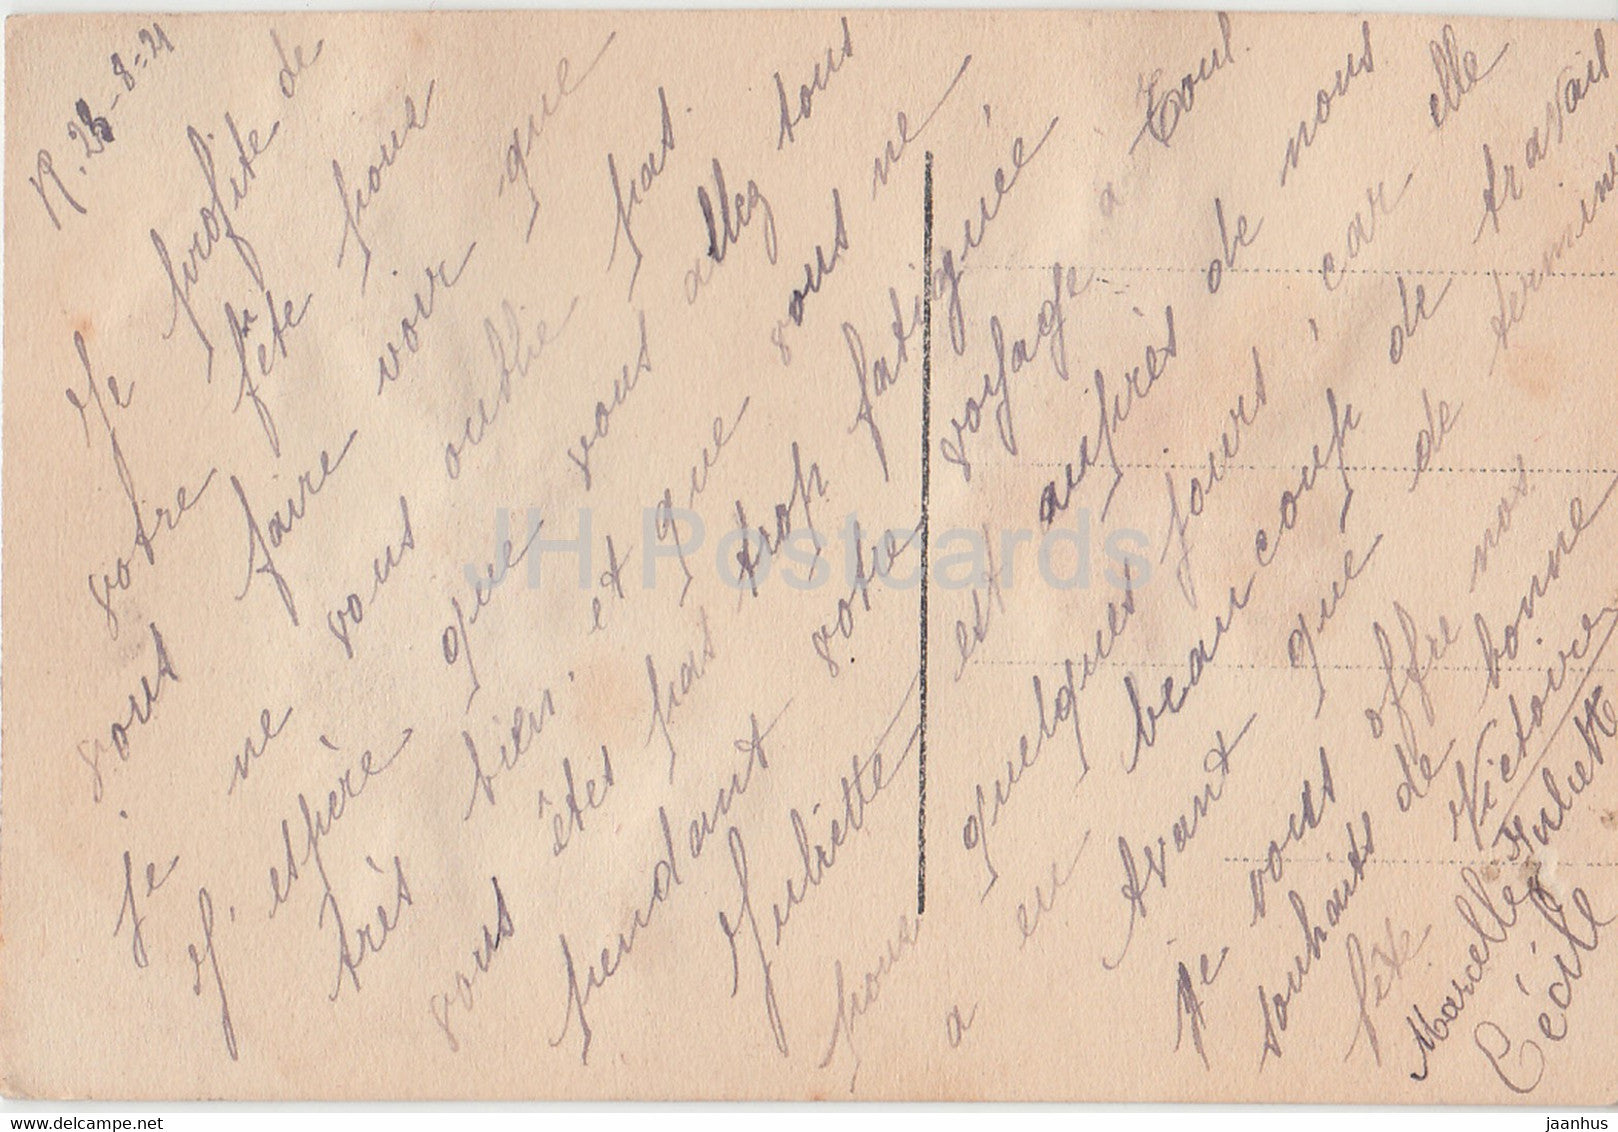 R. 28-8-21
Je profite de
votre fête pour
vous faire voir que
je ne vous oublie pas.
J'espère que vous allez tous
très bien. et que vous ne
vous êtes pas trop fatiguée
pendant votre voyage à Toul.
Juliette est auprès de nous
pour quelques jours, car elle
a eu beaucoup de travail
Avant que de terminer
Je vous offre nos
souhaits de bonne
fête. Victoire
Marcelle, Juliette
Cécile
JH Postcards
www.delcampe.net
jaanhus